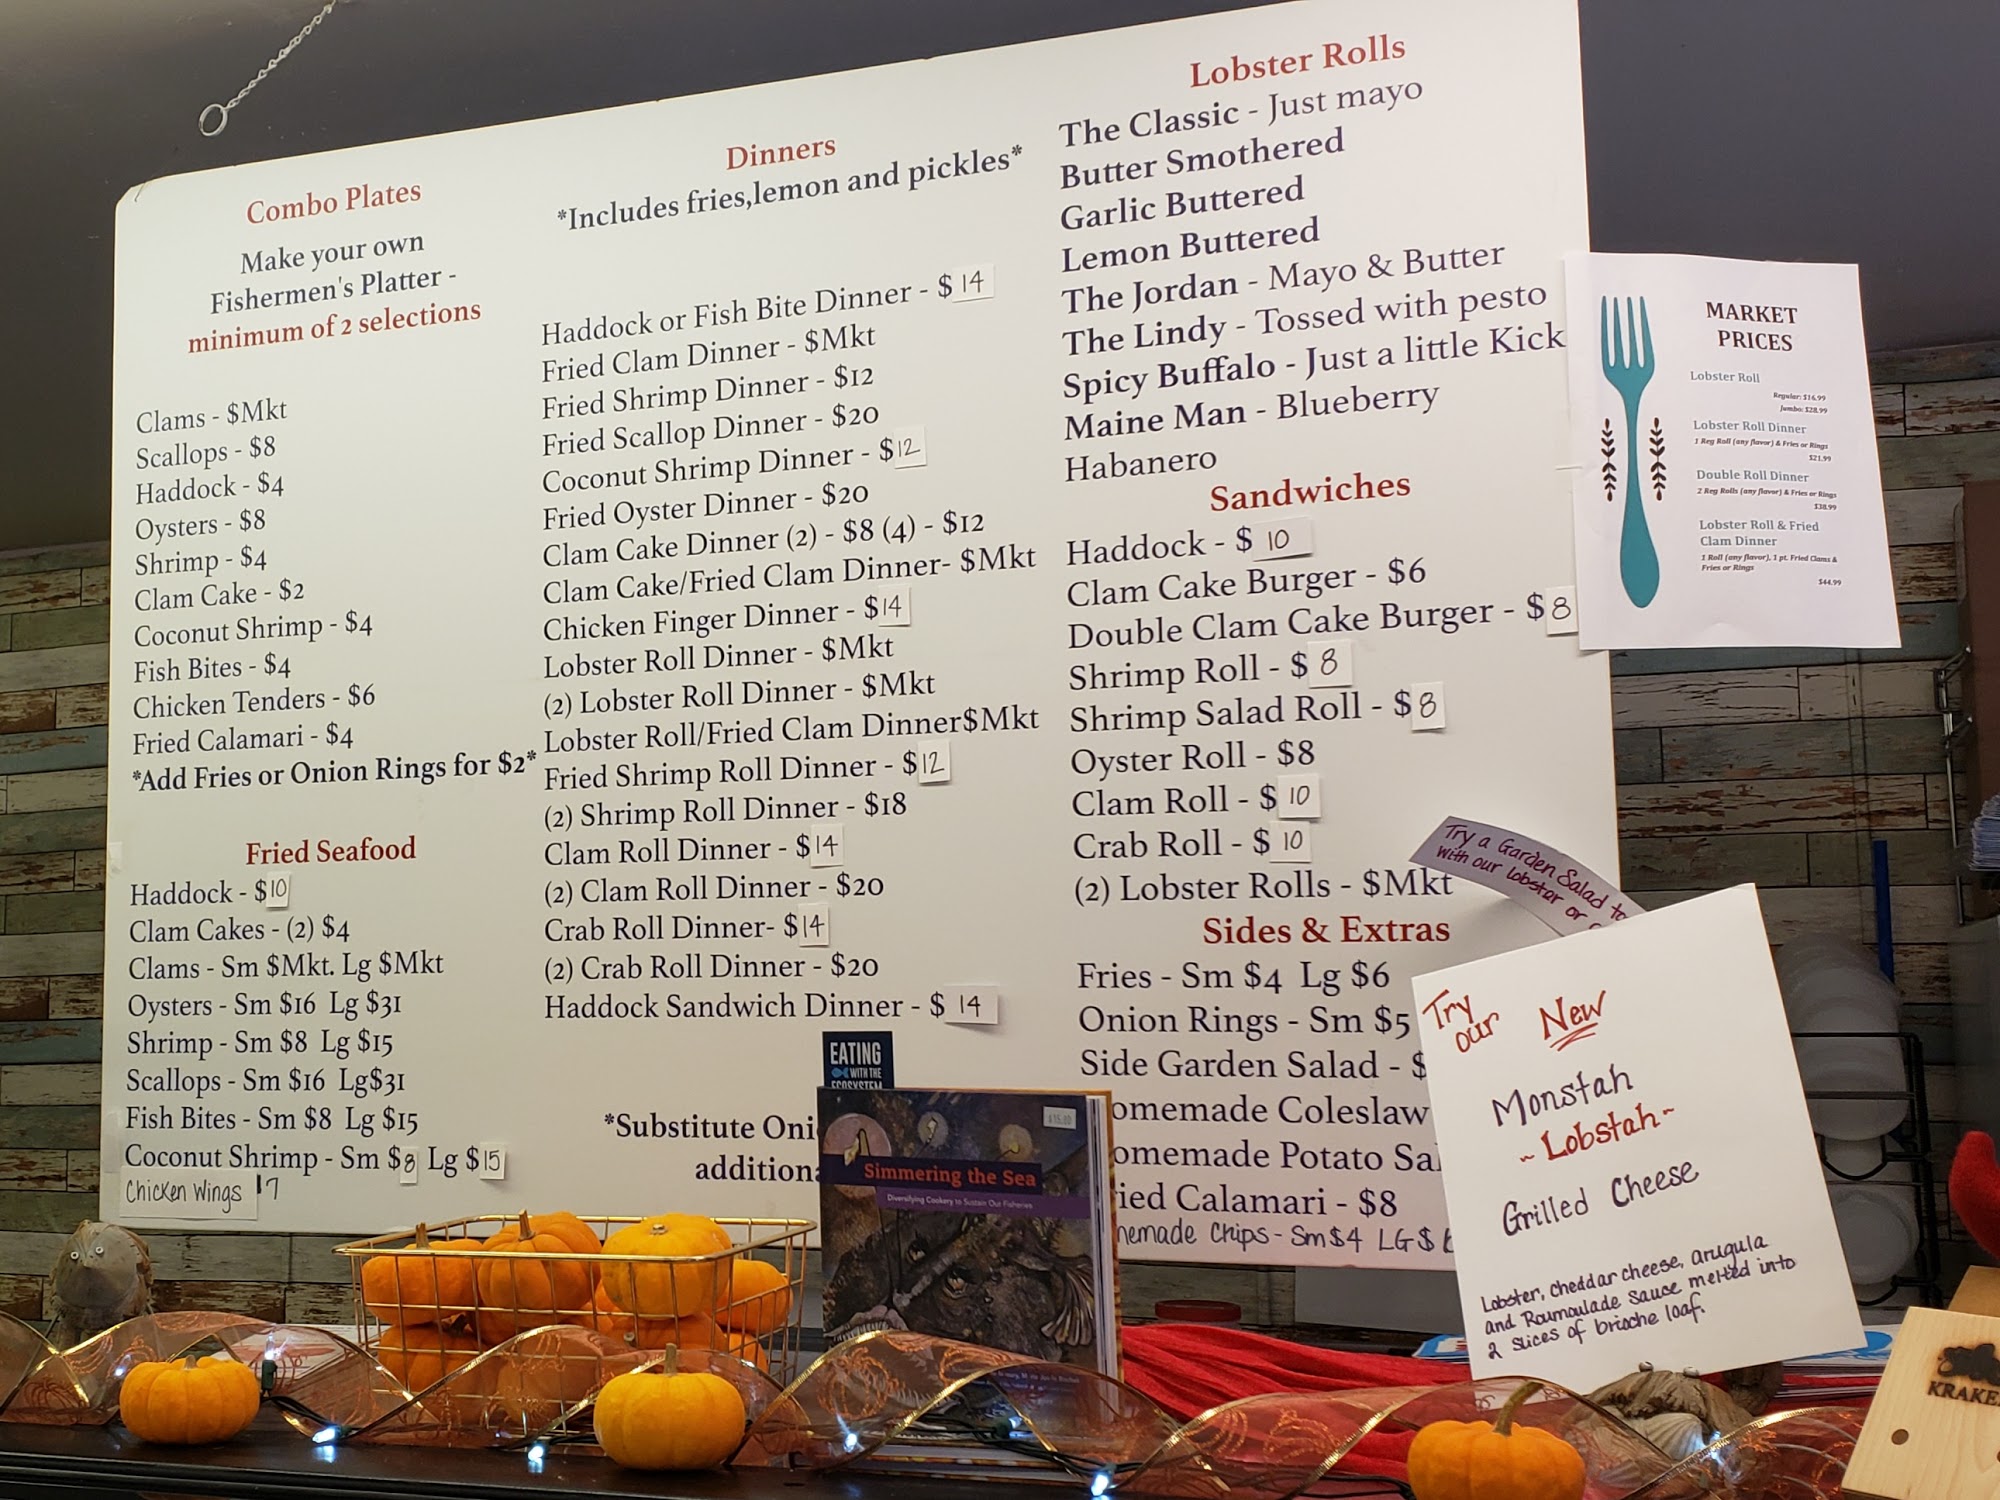 Combo Plates
Make your own
Fishermen's Platter -
minimum of 2 selections
Clams - $Mkt
Scallops - $8
Haddock - $4
Oysters - $8
Shrimp - $4
Clam Cake - $2
Coconut Shrimp - $4
Fish Bites - $4
Chicken Tenders - $6
Fried Calamari - $4
*Add Fries or Onion Rings for $2*
Fried Seafood
Haddock - $10
Clam Cakes - (2) $4
Clams - Sm $Mkt. Lg $Mkt
Oysters - Sm $16 Lg $31
Shrimp - Sm $8 Lg $15
Scallops - Sm $16 Lg$31
Fish Bites - Sm $8 Lg $15
Coconut Shrimp - Sm $8 Lg $15
Chicken Wings $7
Dinners
*Includes fries,lemon and pickles*
Haddock or Fish Bite Dinner - $14
Fried Clam Dinner - $Mkt
Fried Shrimp Dinner - $12
Fried Scallop Dinner - $20
Coconut Shrimp Dinner - $12
Fried Oyster Dinner - $20
Clam Cake Dinner (2) - $8 (4) - $12
Clam Cake/Fried Clam Dinner- $Mkt
Chicken Finger Dinner - $14
Lobster Roll Dinner - $Mkt
(2) Lobster Roll Dinner - $Mkt
Lobster Roll/Fried Clam Dinner$Mkt
Fried Shrimp Roll Dinner - $12
(2) Shrimp Roll Dinner - $18
Clam Roll Dinner - $14
(2) Clam Roll Dinner - $20
Crab Roll Dinner- $14
(2) Crab Roll Dinner - $20
Haddock Sandwich Dinner - $14
*Substitute Oni
addition
EATING
WITH THE
ECOSYSTEM
$15.00
Simmering the Sea
Diversifying Cookery to Sustain Our Fisheries
Lobster Rolls
The Classic - Just mayo
Butter Smothered
Garlic Buttered
Lemon Buttered
The Jordan - Mayo & Butter
The Lindy - Tossed with pesto
Spicy Buffalo - Just a little Kick
Maine Man - Blueberry
Habanero
Sandwiches
Haddock - $10
Clam Cake Burger - $6
Double Clam Cake Burger - $8
Shrimp Roll - $8
Shrimp Salad Roll - $8
Oyster Roll - $8
Clam Roll - $10
Crab Roll - $10
(2) Lobster Rolls - $Mkt
Sides & Extras
Fries - Sm $4 Lg $6
Onion Rings - Sm $5
Side Garden Salad - $
omemade Coleslaw
omemade Potato Sal
ied Calamari - $8
nemade Chips - Sm $4 LG $
MARKET
PRICES
Lobster Roll
Regular: $16.99
Jumbo: $28.99
Lobster Roll Dinner
1 Reg Roll (any flavor) & Fries or Rings
$21.99
Double Roll Dinner
2 Reg Rolls (any flavor) & Fries or Rings
$38.99
Lobster Roll & Fried
Clam Dinner
1 Roll (any flavor), 1 pt. Fried Clams &
Fries or Rings
$44.99
Try a Garden Salad to
with our lobster or
Try
our New
Monstah
~Lobstah~
Grilled Cheese
Lobster, cheddar cheese, arugula
and Roumoulade sauce melted into
2 slices of brioche loaf.
KRAKE